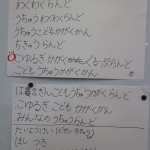 わくわくらんど
うちゅうわくわくらんど
うちゅうこどもかがくかん
ちきゅうらんど
こゆるぎ かがくくるっぷらんど
こども うちゅうかがくかん
はまぎんこどもうちゅうからんど
こゆるぎ こども かがくかん
みんなのうちゅうらんど
たいようけい
ほし つき